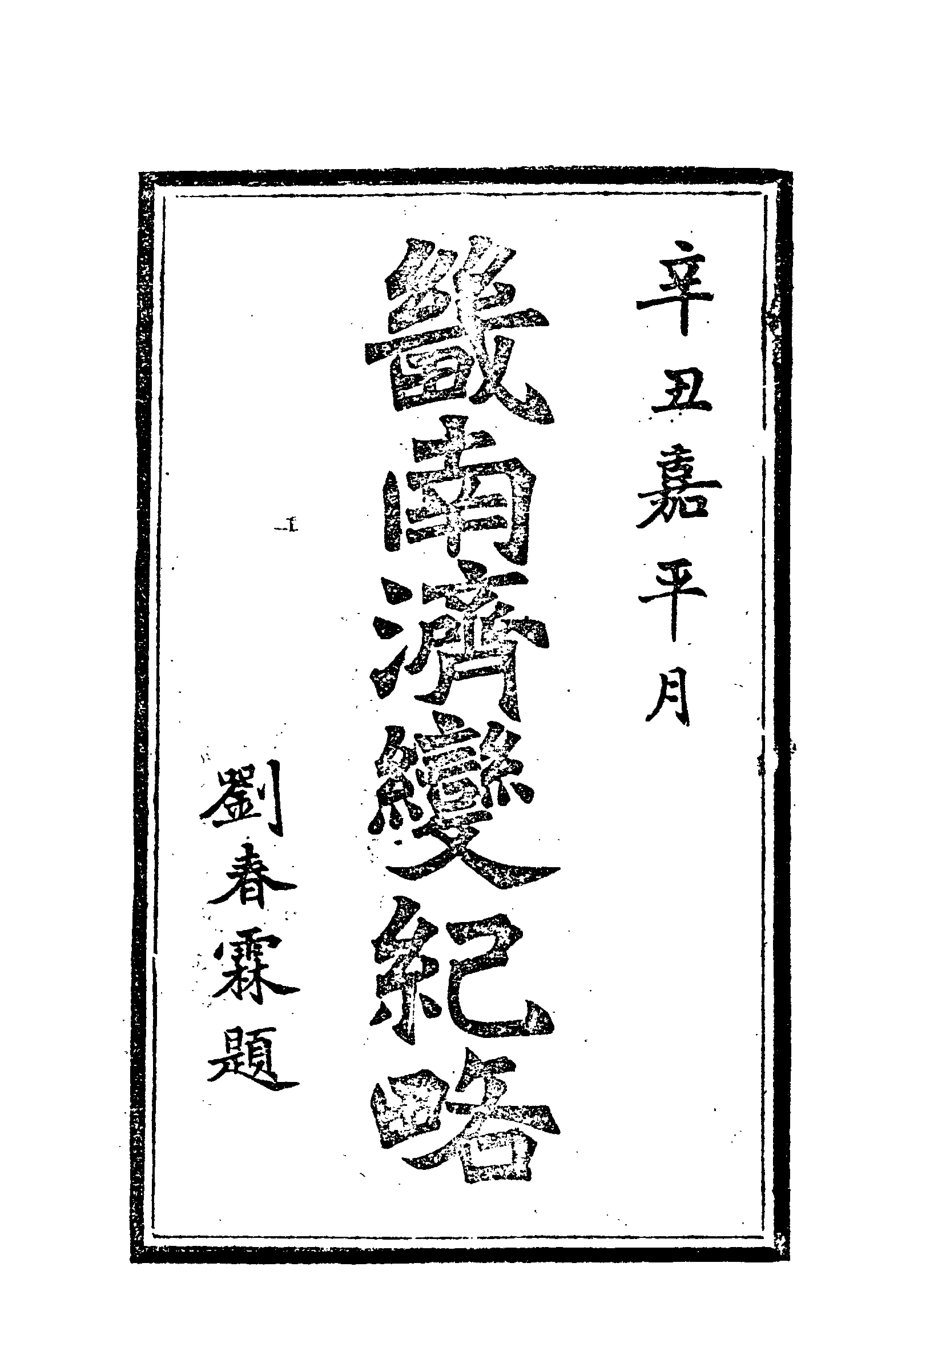 辛丑嘉平月
畿南濟變紀略
劉春霖題